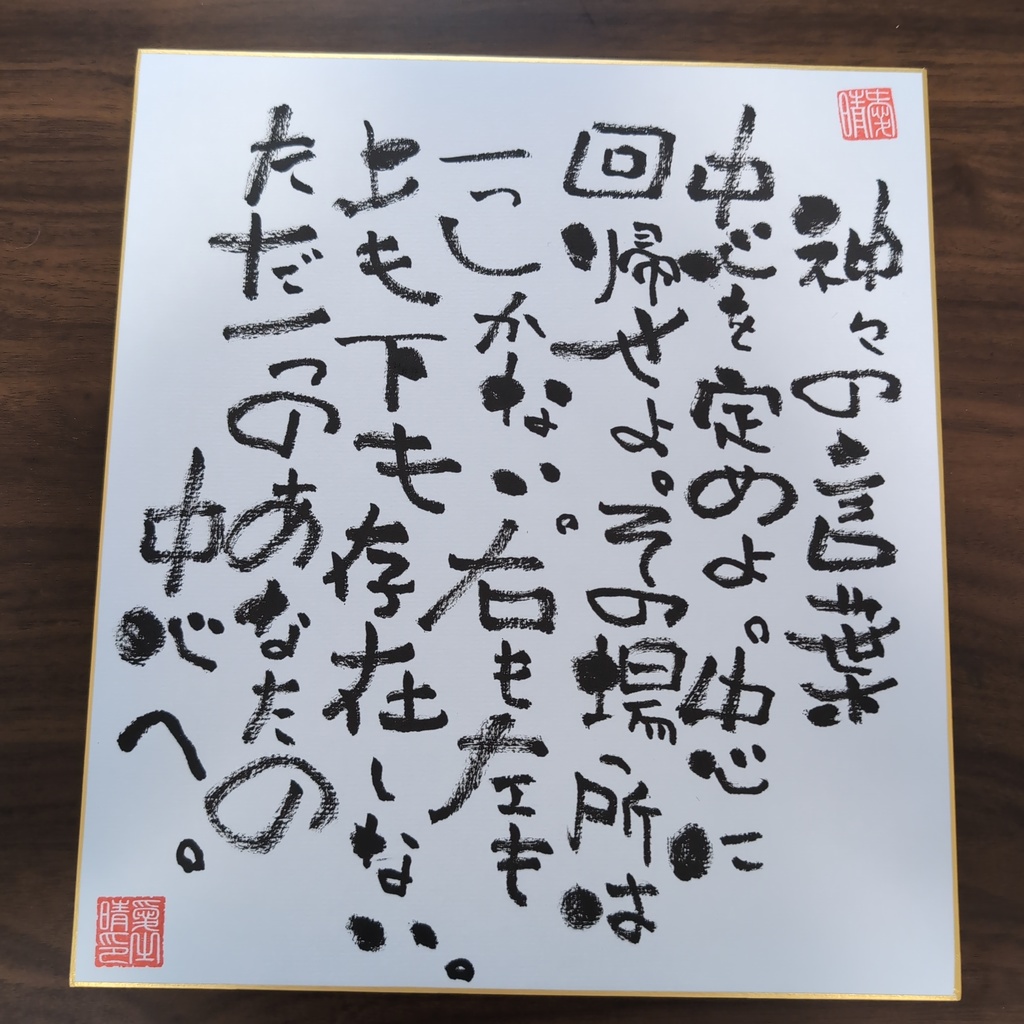 神々の言葉
中心を定めよ。中心に
回帰せよ。その場所は
一つしかない。右も左も
上も下も存在しない。
ただ一つのあなたの
中心へ。